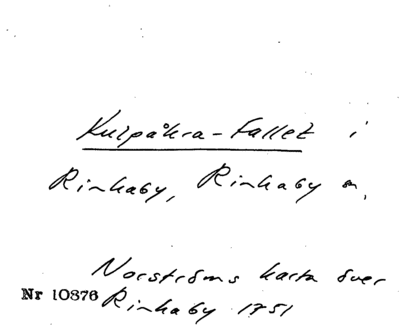 Kulpåkra-fallet i
Rinkaby, Rinkaby sn,
Norströms karta över
Nr 10876 Rinkaby 1751